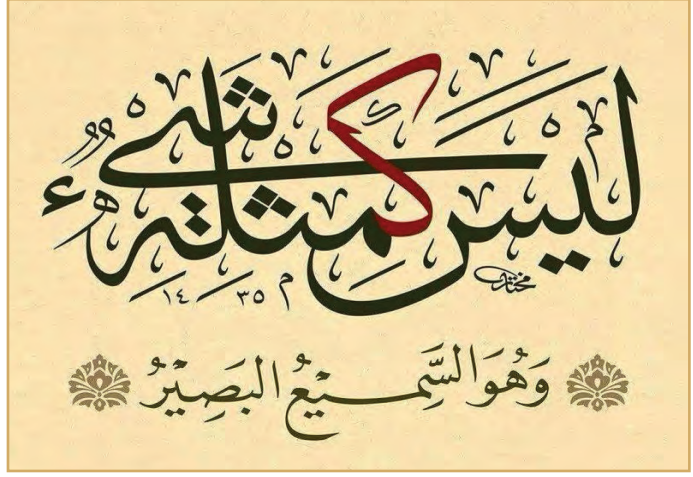 لَيْسَ كَمِثْلِهِ شَيْءٌ
مختار ١٤٣٥
وَهُوَ السَّمِيْعُ البَصِيْرُ